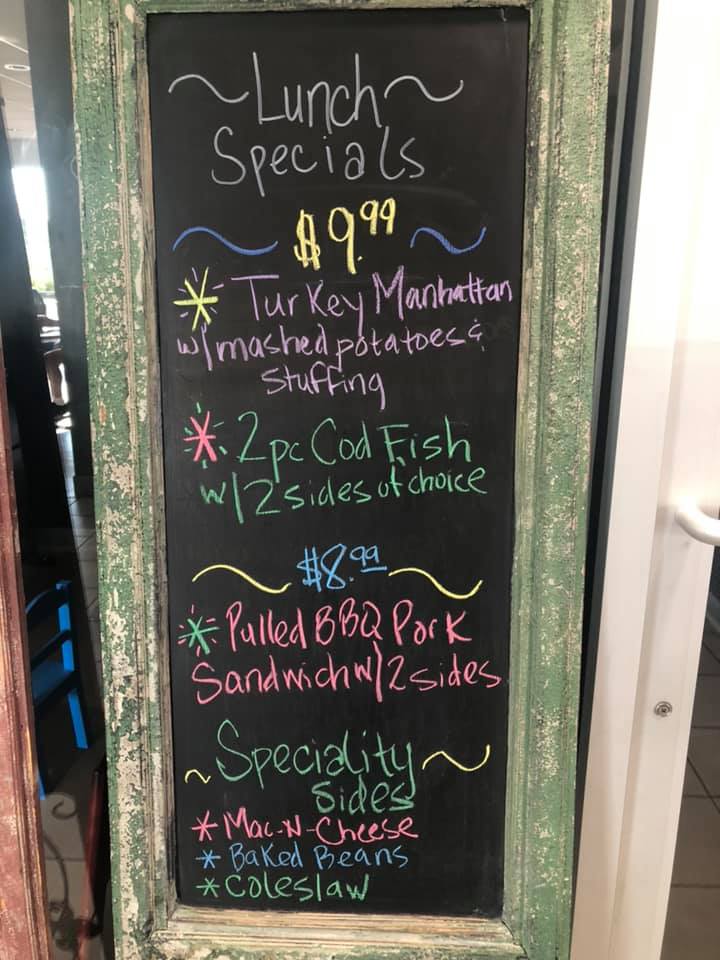 ~Lunch~
Specials
$9.99
* Turkey Manhattan
w/mashed potatoes &
stuffing
* 2pc Cod Fish
w/2 sides of choice
$8.99
* Pulled BBQ Pork
Sandwich w/2 sides
~Speciality~
Sides
* Mac-N-Cheese
* Baked Beans
* Coleslaw